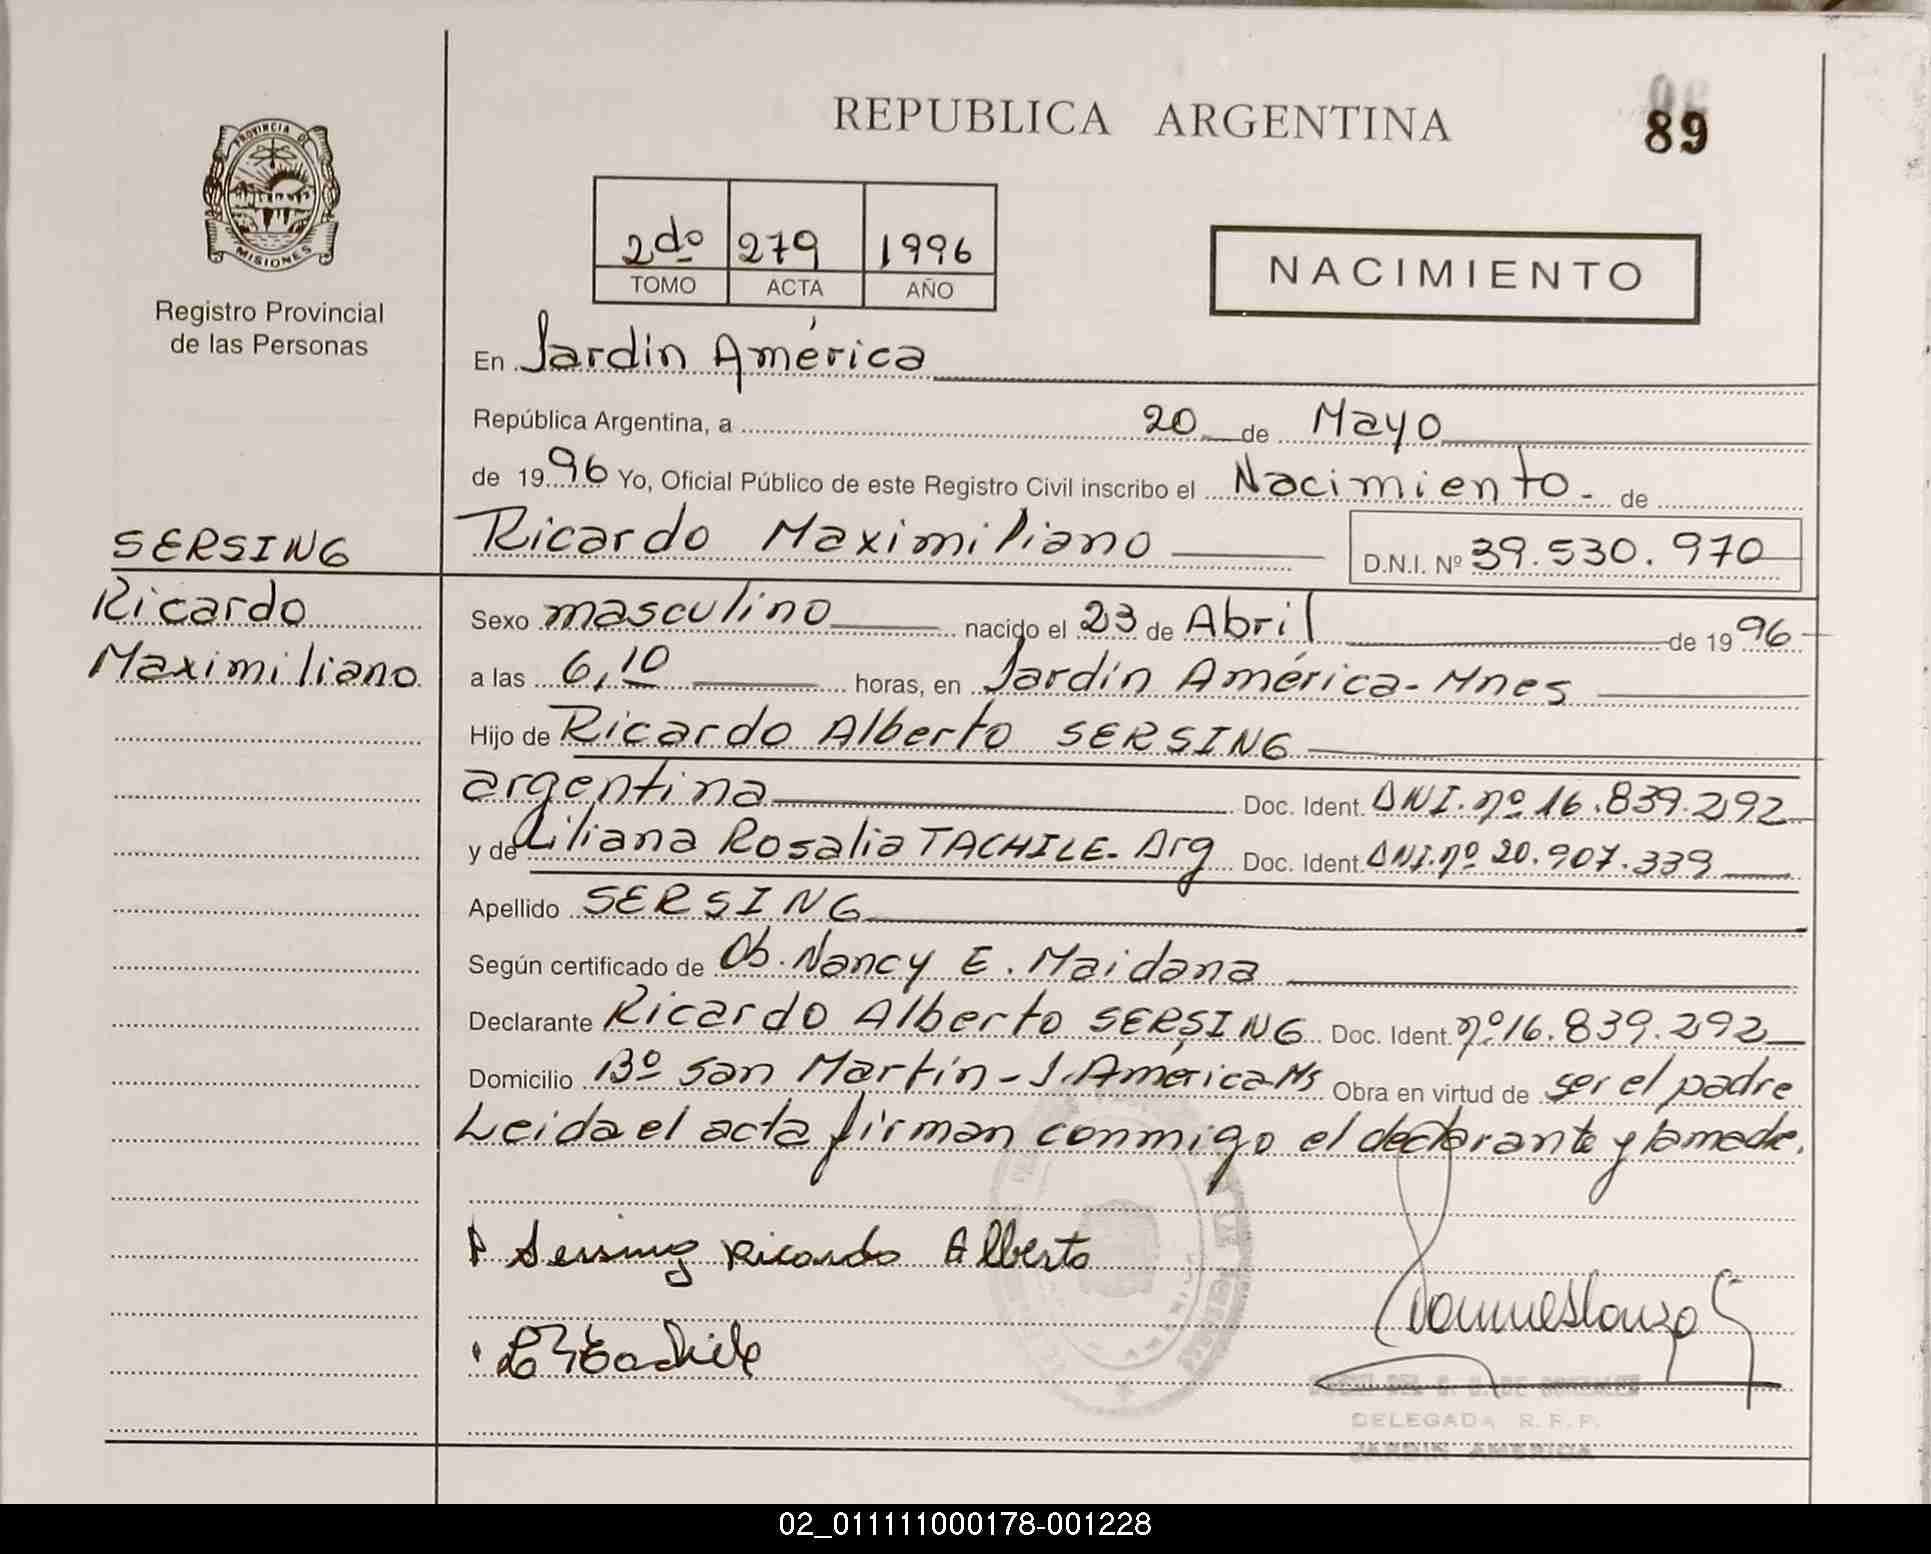 REPUBLICA ARGENTINA
89
PROVINCIA DE
MISIONES
Registro Provincial
de las Personas
2do 279 1996
TOMO ACTA AÑO
NACIMIENTO
En Jardín América
República Argentina, a 20 de Mayo
de 1996 Yo, Oficial Público de este Registro Civil inscribo el Nacimiento. de
Ricardo Maximiliano D.N.I. Nº 39.530.970
SERSING
Ricardo
Maximiliano
Sexo masculino nacido el 23 de Abril de 1996
a las 6,10 horas, en Jardín América-Mnes
Hijo de Ricardo Alberto SERSING
argentina Doc. Ident. DNI. nº 16.839.292
y de Liliana Rosalia TACHILE. Arg Doc. Ident. DNI. nº 20.907.339
Apellido SERSING
Según certificado de Ob. Nancy E. Maidana
Declarante Ricardo Alberto SERSING Doc. Ident. nº 16.839.292
Domicilio Bº San Martín - J. América-Ms Obra en virtud de ser el padre
Leida el acta firman conmigo el declarante y la madre.
Sersing Ricardo Alberto
DELEGADA R.P.P.
JARDIN AMERICA
02_011111000178-001228